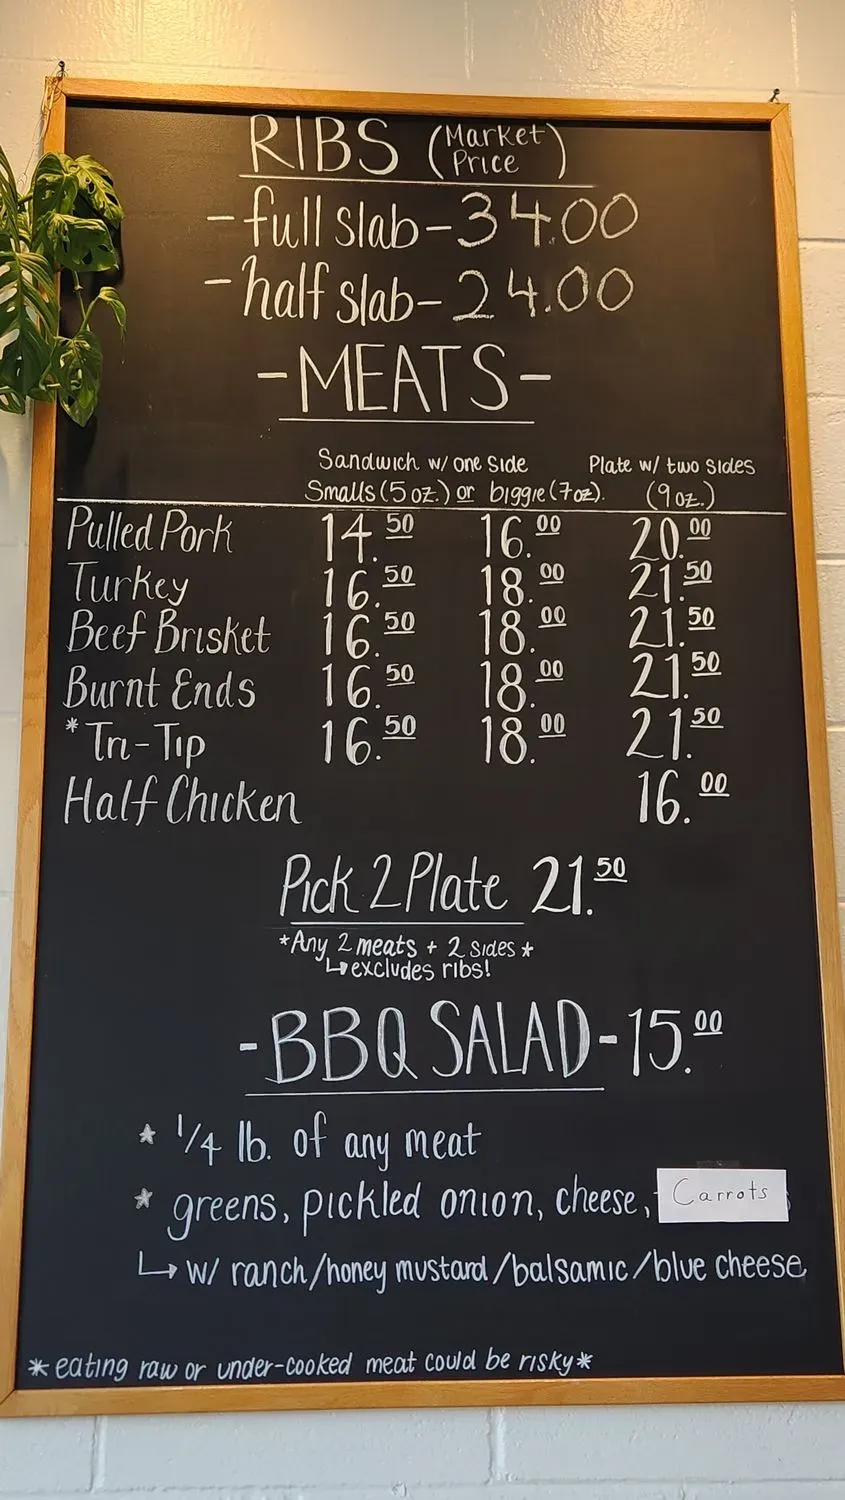 RIBS (Market Price)
-full slab-34.00
-half slab-24.00
-MEATS-
Sandwich w/ one side Plate w/ two sides
Smalls (5 oz.) or biggie (7 oz). (9 oz.)
Pulled Pork 14.50 16.00 20.00
Turkey 16.50 18.00 21.50
Beef Brisket 16.50 18.00 21.50
Burnt Ends 16.50 18.00 21.50
*Tri-Tip 16.50 18.00 21.50
Half Chicken 16.00
Pick 2 Plate 21.50
*Any 2 meats + 2 sides*
↳excludes ribs!
-BBQ SALAD-15.00
* 1/4 lb. of any meat
* greens, pickled onion, cheese, Carrots
↳ w/ ranch/honey mustard/balsamic/blue cheese
*eating raw or under-cooked meat could be risky*